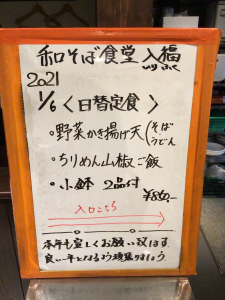 和そば食堂 入福
いりふく
2021
1/6 <日替定食>
・野菜かき揚げ天(そば うどん
・ちりめん山椒ご飯
・小鉢 2品付
¥850-
入口こちら
本年も宜しくお願い致します。
良い一年となるよう頑張りましょう。